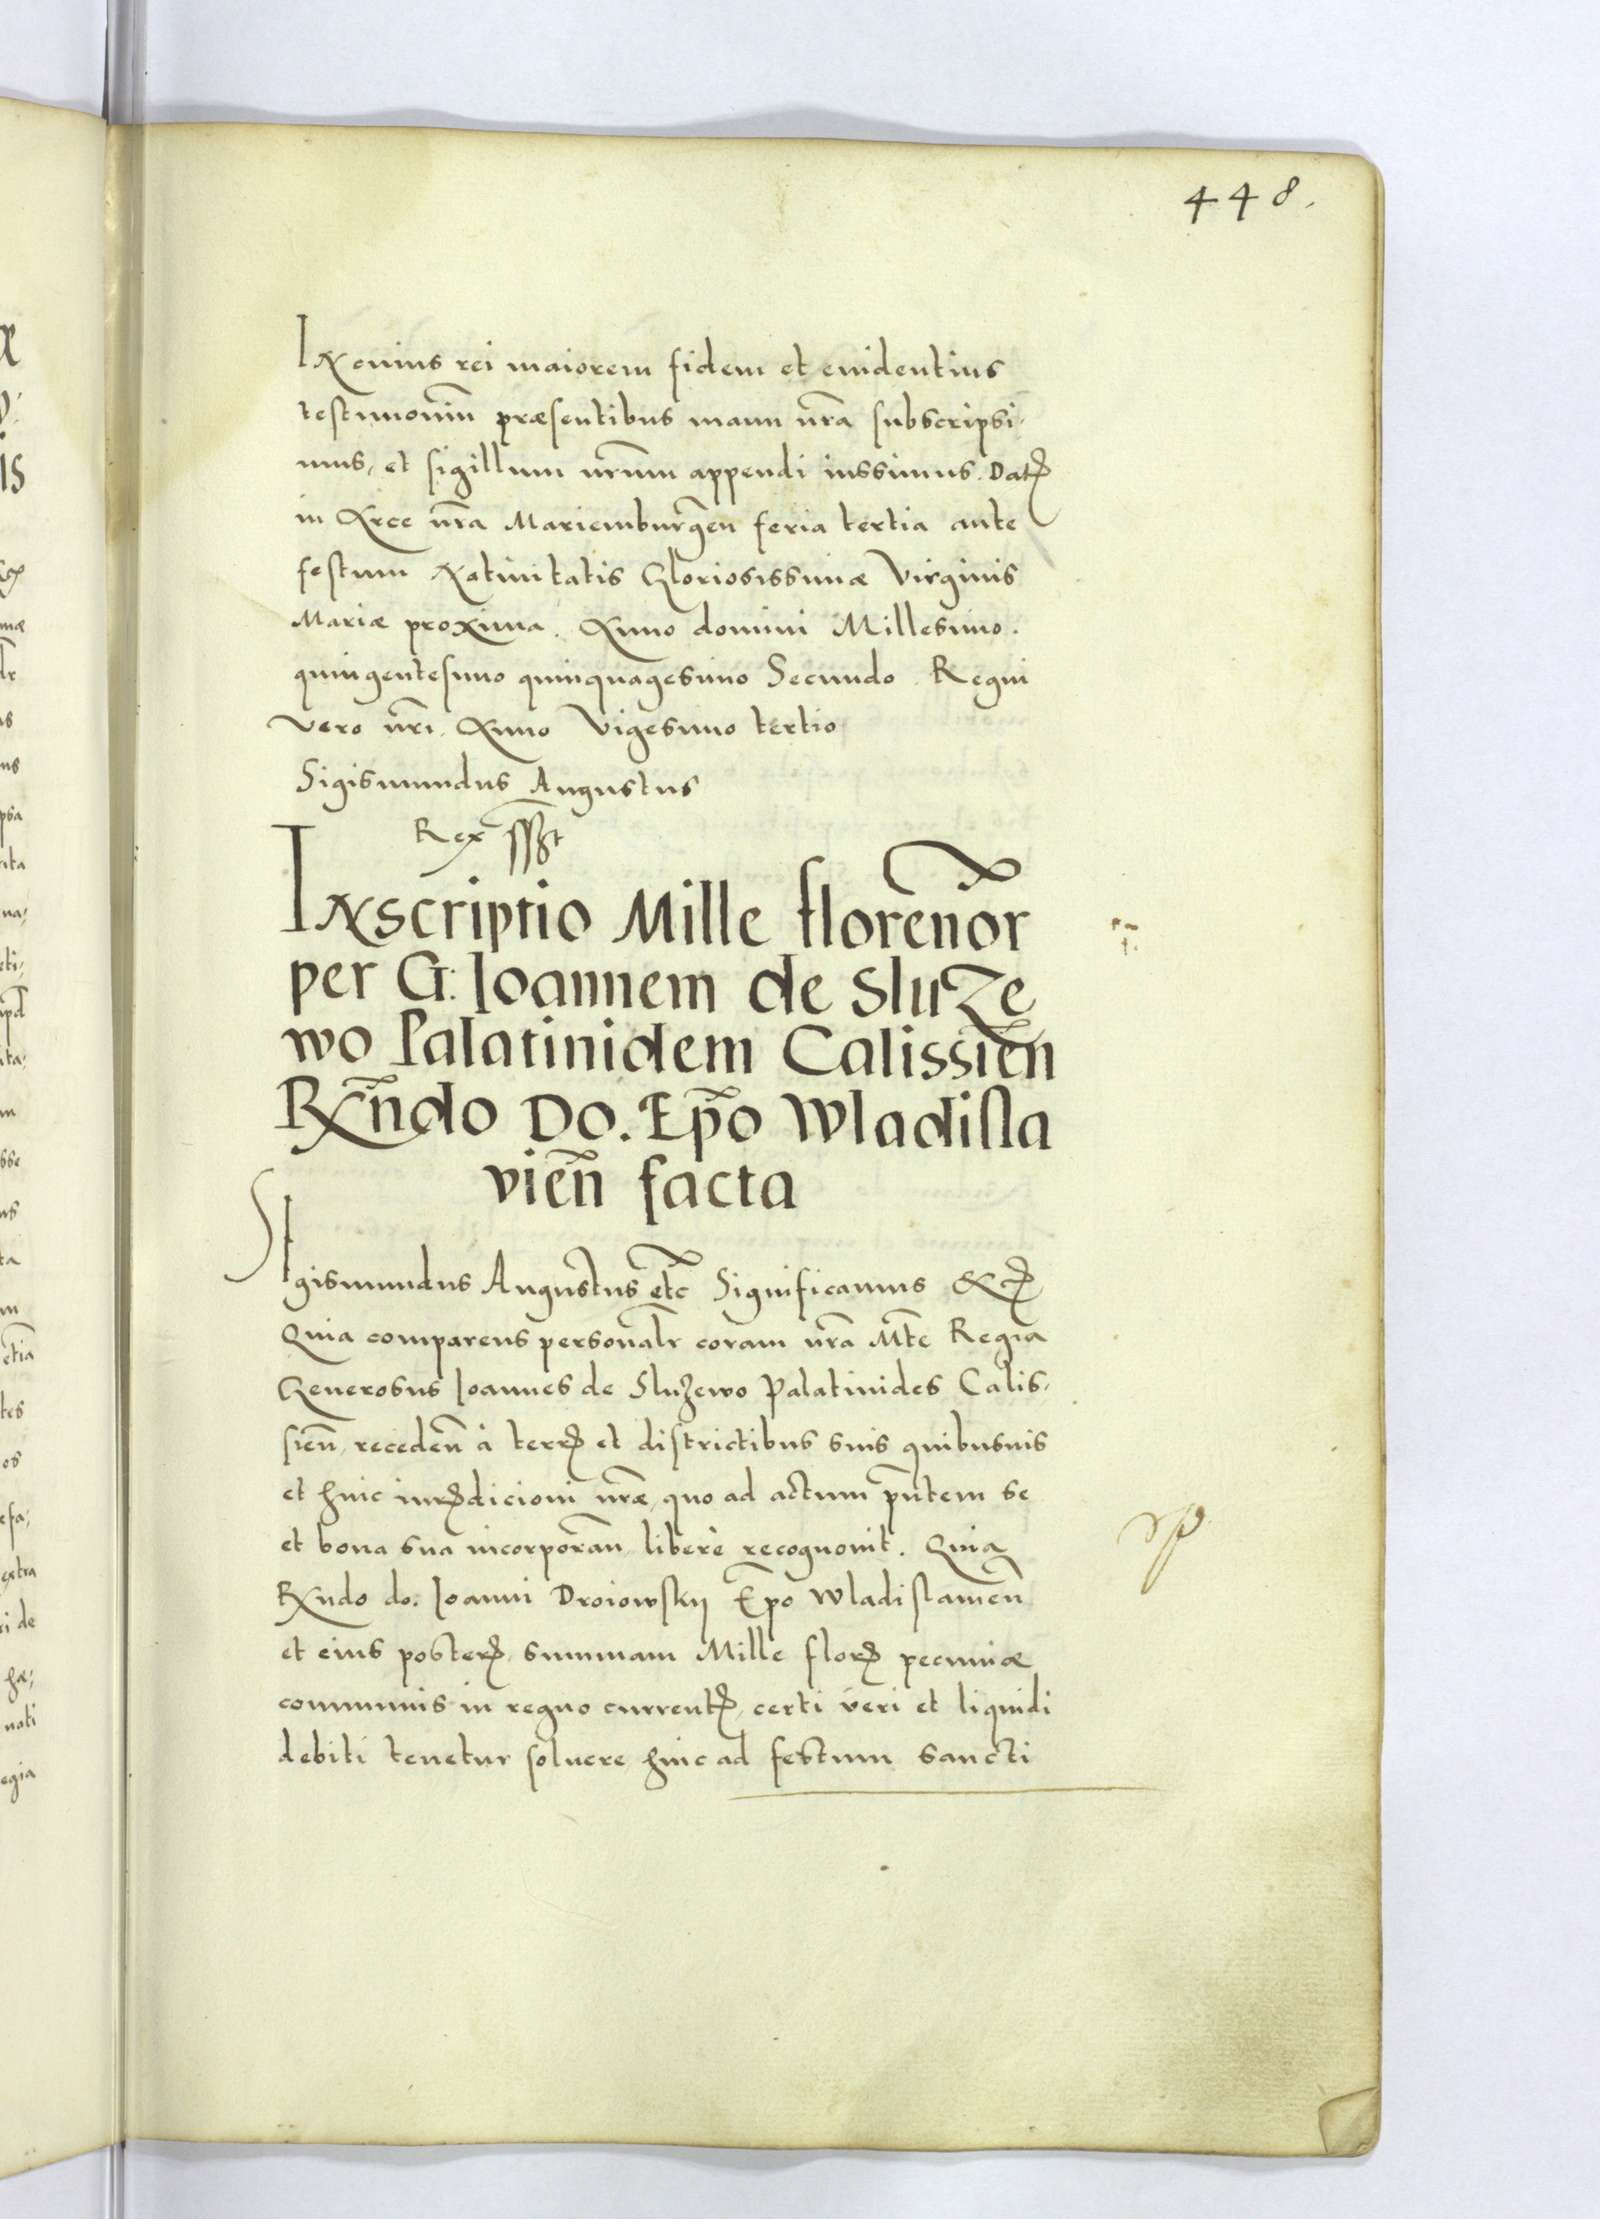 448.
In cuius rei maiorem fidem et euidentius
testimoniũ præsentibus manu nr̃a subscripsi-
mus, et sigillum nr̃um appendi iussimus. Datꝝ
in Arce nr̃a Mariemburgeñ feria tertia ante
festum Natiuitatis Gloriosissimæ Virginis
Mariæ proxima. Anno domini Millesimo.
quingentesimo quinquagesimo Secundo. Regni
vero nr̃i. Anno Vigesimo tertio
Sigismundus Augustus
Rex sszt
Inscriptio Mille floreñor
per G. Ioannem de Sluze
wo Palatinidem Calissieñ
Rx̃ndo Do. Ep̃o Wladisla
vieñ facta
Sigismundus Augustus et̃c Significamus &ꝝ
Quia comparens personal̃r coram nr̃a Mt̃e Regia
Generosus Ioannes de Sluzewo Palatinides Calis-
sieñ, recedeñ à terrꝝ et districtibus suis quibusuis
et huic iurꝝdicioni nr̃æ, quo ad actum pñtem se
et bona sua incorporañ, liberè recognouit. Quia
Rx̃ndo do. Ioanni Droiowskij Ep̃o Wladislauieñ
et eius posterꝝ, summam Mille florꝝ pecuniæ
communis in regno currentꝝ, certi veri et liquidi
debiti tenetur soluere, hinc ad festum sancti